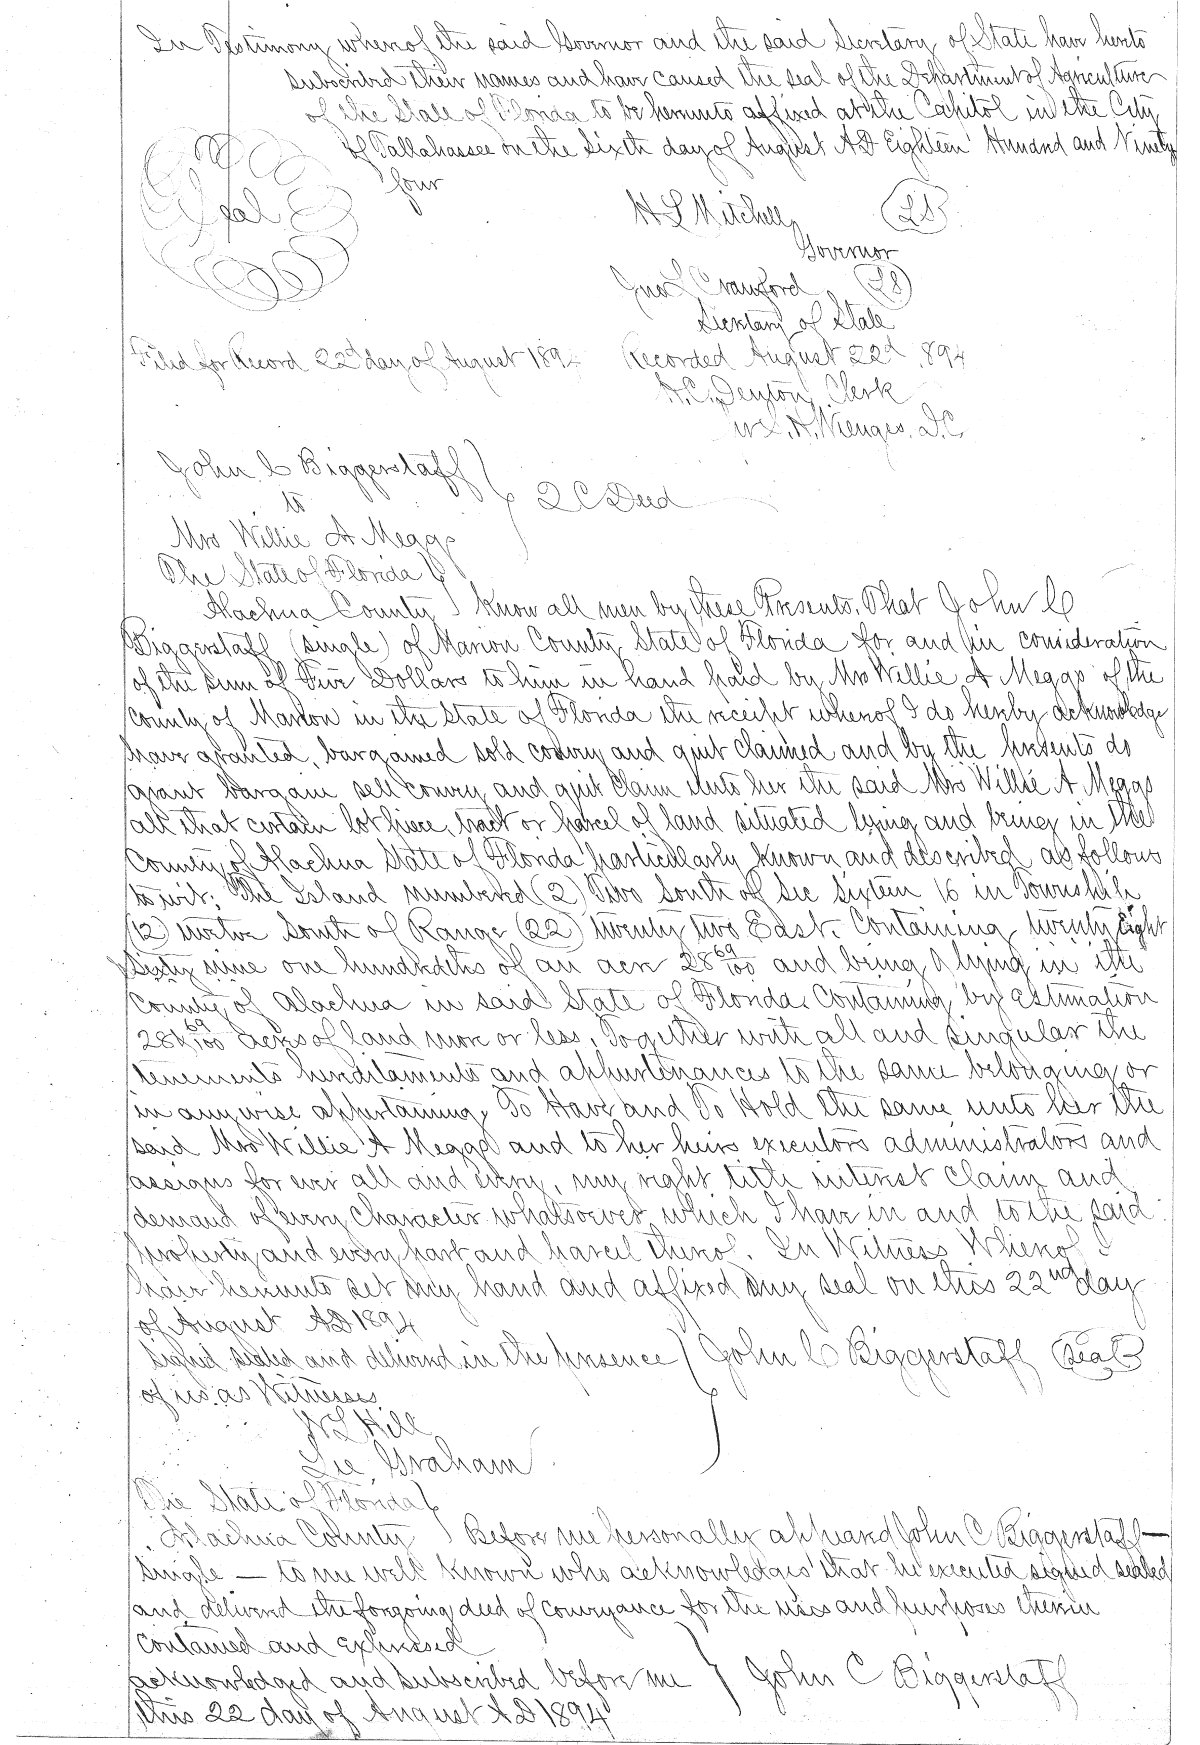 In Testimony whereof the said Governor and the said Secretary of State have hereto
subscribed their names and have caused the seal of the Department of Agriculture
of the State of Florida to be hereunto affixed at the Capitol in the City
of Tallahassee on the Sixth day of August AD Eighteen Hundred and Ninety
four
Seal
H L Mitchell LS
Governor
Jno L Crawford LS
Secretary of State
Filed for Record 22d day of August 1894 Recorded August 22d 1894
H. C. Denton, Clerk
D.C.
John C Biggerstaff
to
Q C Deed
Mrs Willie A Meggs
The State of Florida
Alachua County Know all men by these Presents, That John C
Biggerstaff (single) of Marion County State of Florida for and in consideration
of the sum of Five Dollars to him in hand paid by Mrs Willie A Meggs of the
County of Marion in the State of Florida the receipt whereof I do hereby acknowledge
have granted, bargained sold convey and quit claimed and by the presents do
grant bargain sell convey and quit claim unto her the said Mrs Willie A Meggs
all that certain lot piece, tract or parcel of land situated lying and being in the
County of Alachua State of Florida particularly known and described as follows
to wit: The Island numbered (2) Two South of Sec Sixteen 16 in Township
(12) twelve South of Range (22) twenty two East. Containing twenty Eight
Sixty nine one hundredths of an acre 28 69/100 and being & lying in the
County of Alachua in said State of Florida. Containing by Estimation
28 69/100 acres of land more or less. Together with all and singular the
tenements hereditaments and appurtenances to the same belonging or
in anywise appertaining, To Have and To Hold the same unto her the
said Mrs Willie A Meggs and to her heirs executors administrators and
assigns for ever all and every, my right title interest claim and
demand of every Character whatsoever which I have in and to the said
property and every part and parcel thereof. In Witness Whereof I
have hereunto set my hand and affixed my seal on this 22nd day
of August AD 1894
Signed sealed and delivered in the presence John C Biggerstaff Seal
of us as Witnesses
W L Hill
Lee Graham
The State of Florida
Alachua County Before me personally appeared John C Biggerstaff —
single — to me well known who acknowledges that he executed signed sealed
and delivered the foregoing deed of conveyance for the uses and purposes therein
contained and expressed
acknowledged and subscribed before me John C Biggerstaff
this 22 day of August AD 1894